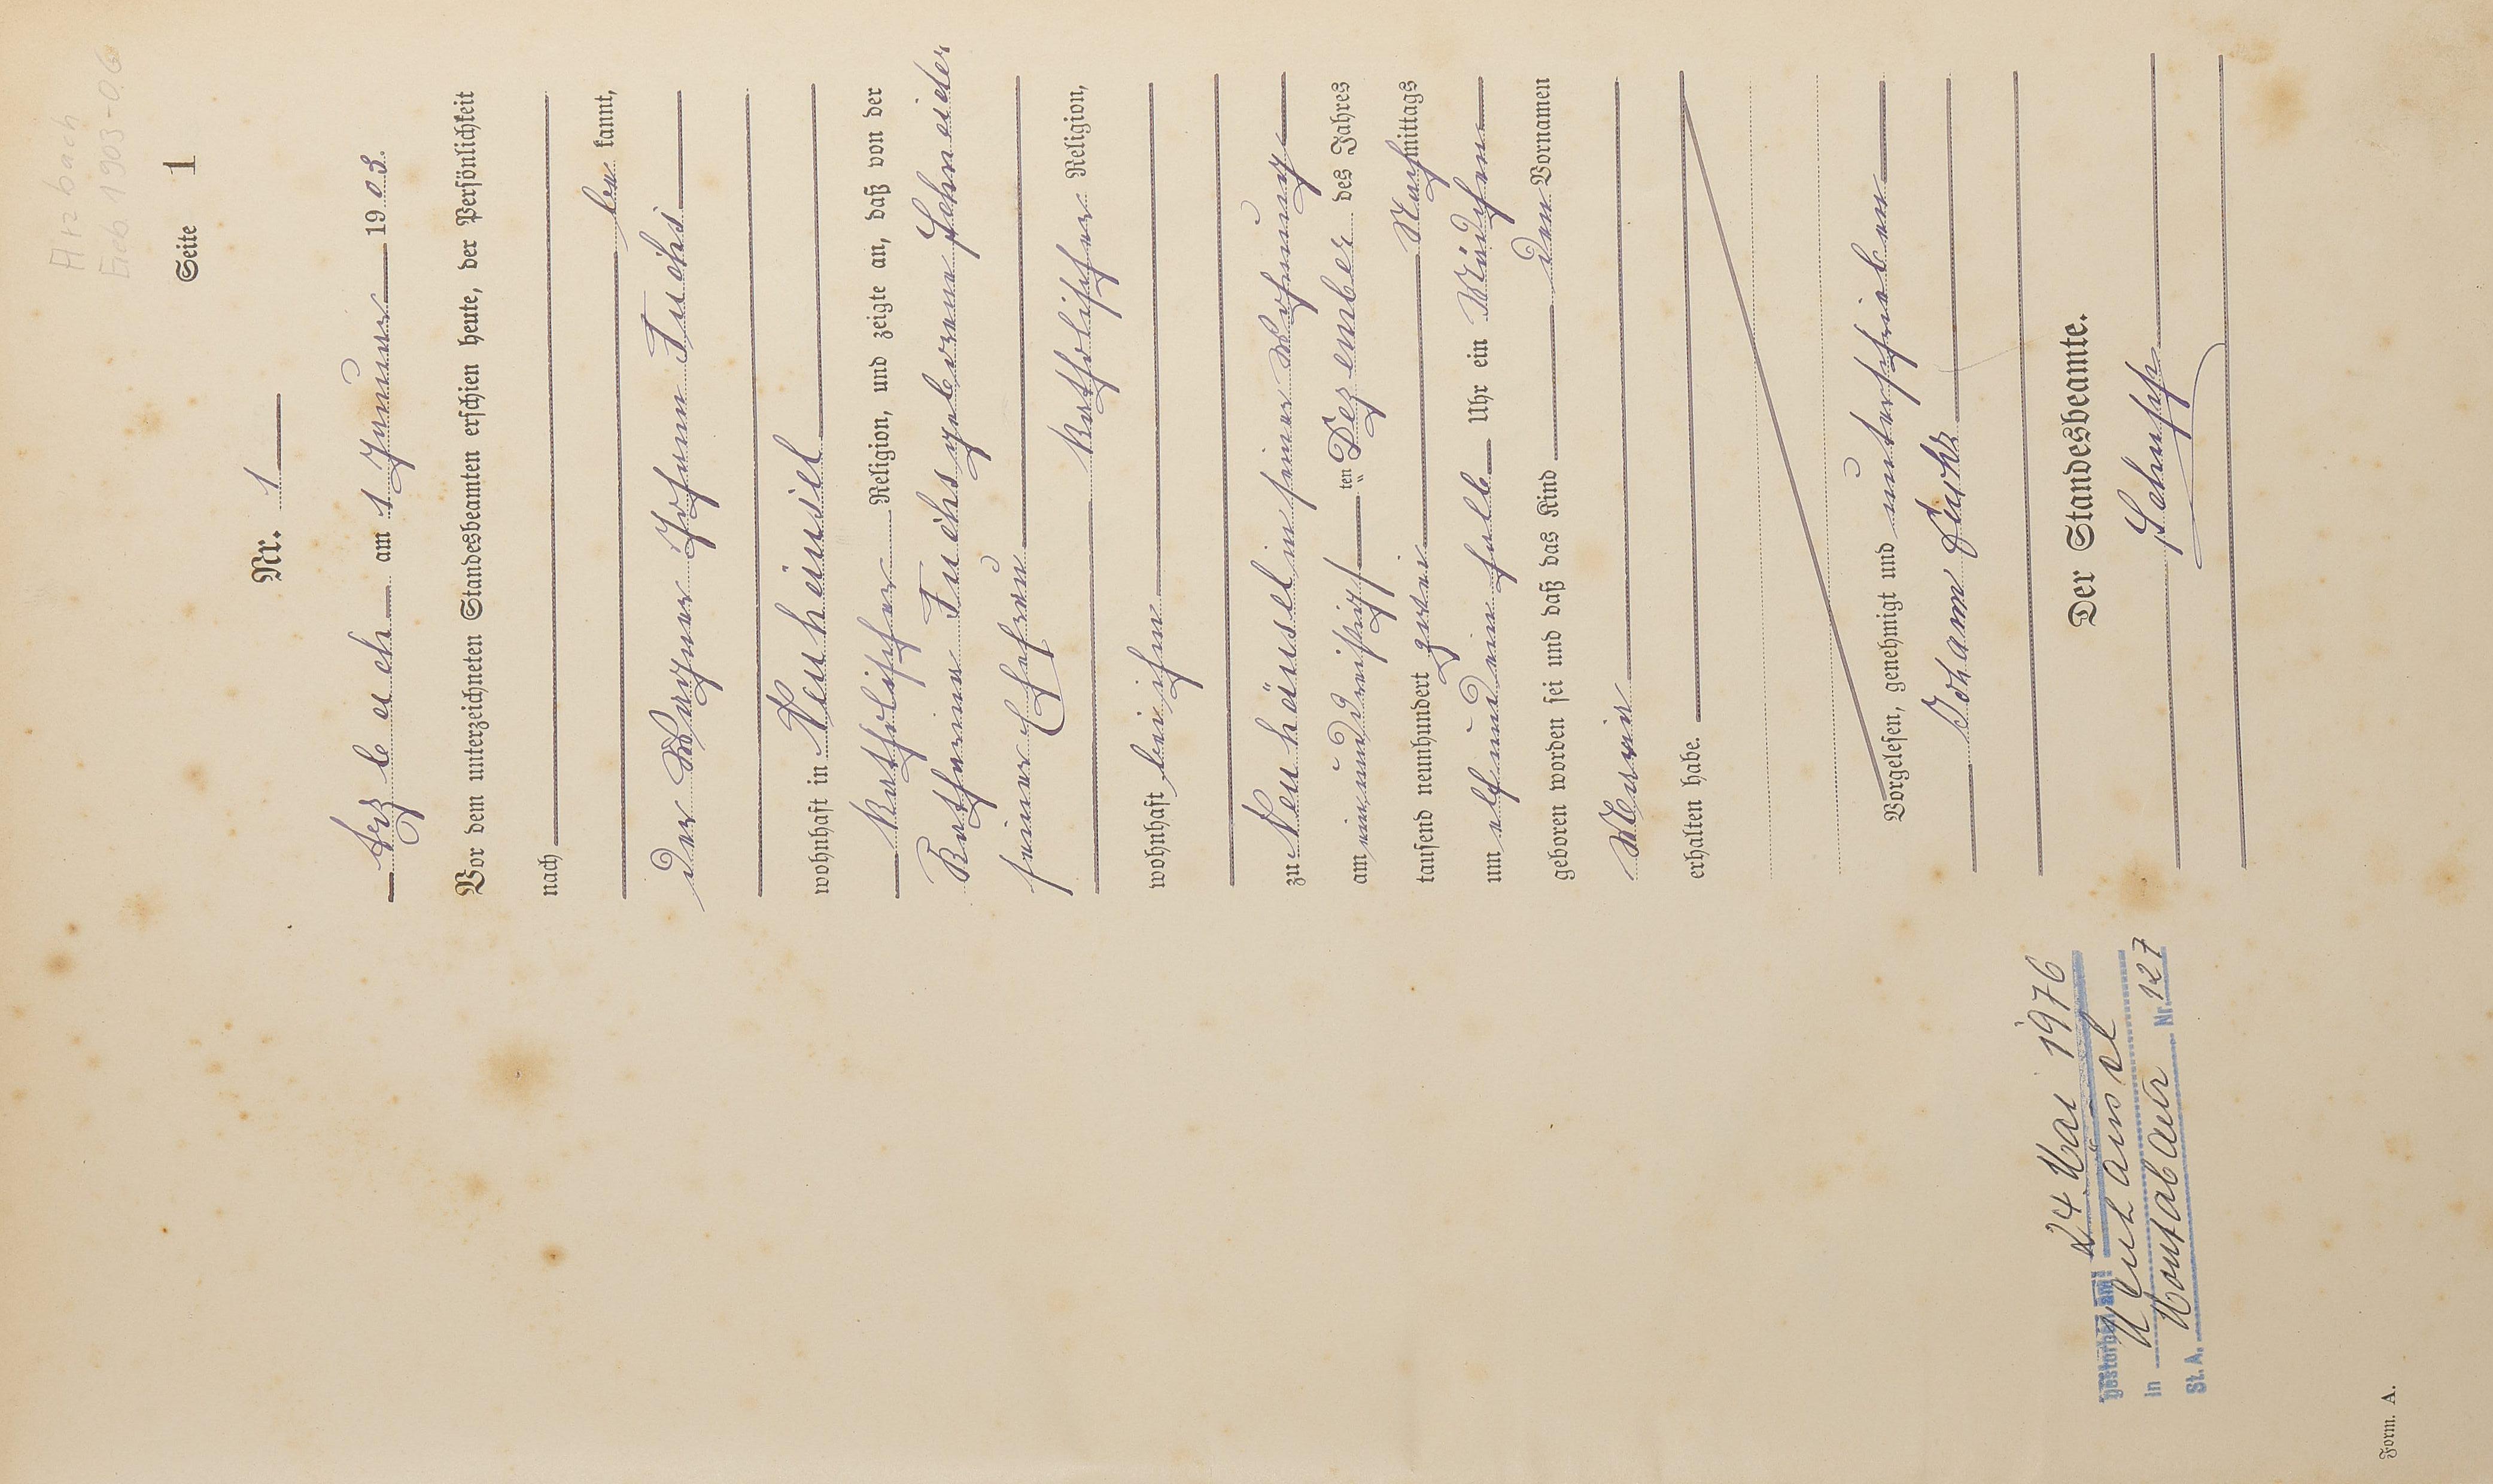 Arzbach
Geb. 1903-06
Seite 1
Nr. 1
Arzbach am 1 Januar 1903.
Vor dem unterzeichneten Standesbeamten erschien heute, der Persönlichkeit
nach
be kannt,
der Wagner Johann Fuchs
wohnhaft in Neuhäusel
katholischer Religion, und zeigte an, daß von der
Katharina Fuchs geborene Schneider
seiner Ehefrau
katholischer Religion,
wohnhaft bei ihm
zu Neuhäusel in seiner Wohnung
am einunddreißigst ten Dezember des Jahres
tausend neunhundert zwei Nachmittags
um elf und ein halb Uhr ein Mädchen
geboren worden sei und daß das Kind den Vornamen
Maria
erhalten habe.
Vorgelesen, genehmigt und unterschrieben
Johann Fuchs
Der Standesbeamte.
gestorben am: 24 Mai 1976
in Neuhäusel
St. A. Montabaur Nr. 127
Form. A.